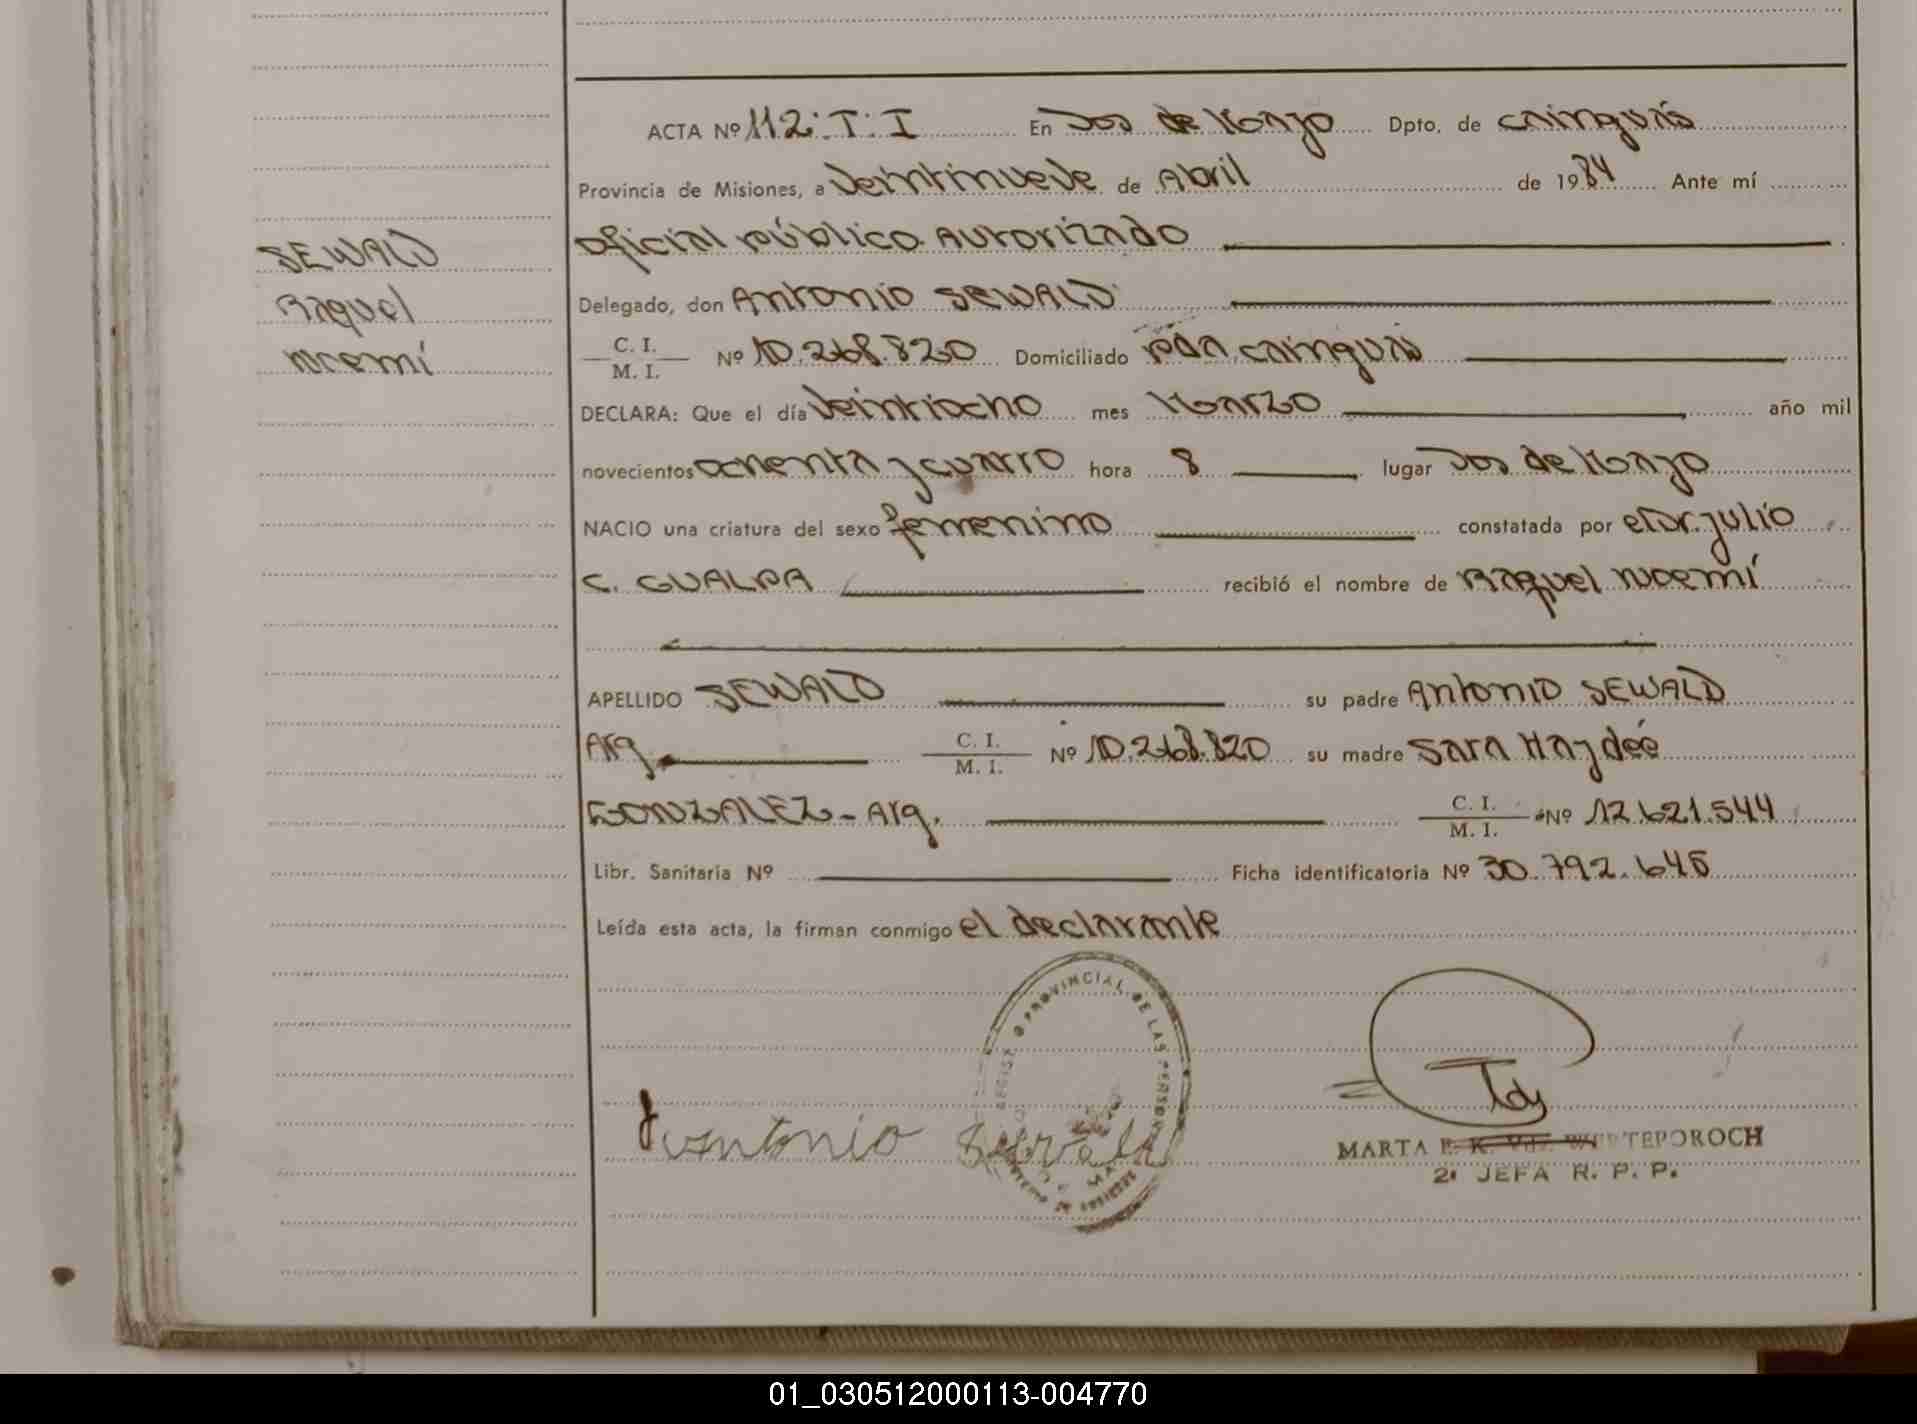 ACTA Nº 112: T: I En Dos de Mayo Dpto. de Cainguás
Provincia de Misiones, a Veintinueve de Abril de 1984 Ante mí
Oficial Público Autorizado
SEWALD
Delegado, don Antonio SEWALD
Raquel
C. I. M. I. Nº 10.268.820 Domiciliado Cainguás
Noemí
DECLARA: Que el día Veintiocho mes Marzo año mil
novecientos ochenta y cuatro hora 8 lugar Dos de Mayo
NACIO una criatura del sexo femenino constatada por el Dr. Julio
C. GUALPA recibió el nombre de Raquel Noemí
APELLIDO SEWALD su padre Antonio SEWALD
Arg. C. I. M. I. Nº 10.268.820 su madre Sara Haydée
GONZALEZ - Arg. C. I. M. I. Nº 12.621.544
Libr. Sanitaria Nº Ficha identificatoria Nº 30.792.645
Leída esta acta, la firman conmigo el declarante
PROVINCIAL DE LAS PERSONAS
Antonio Sewald
MARTA TEPOROCH
2ª JEFA R. P. P.
01_030512000113-004770